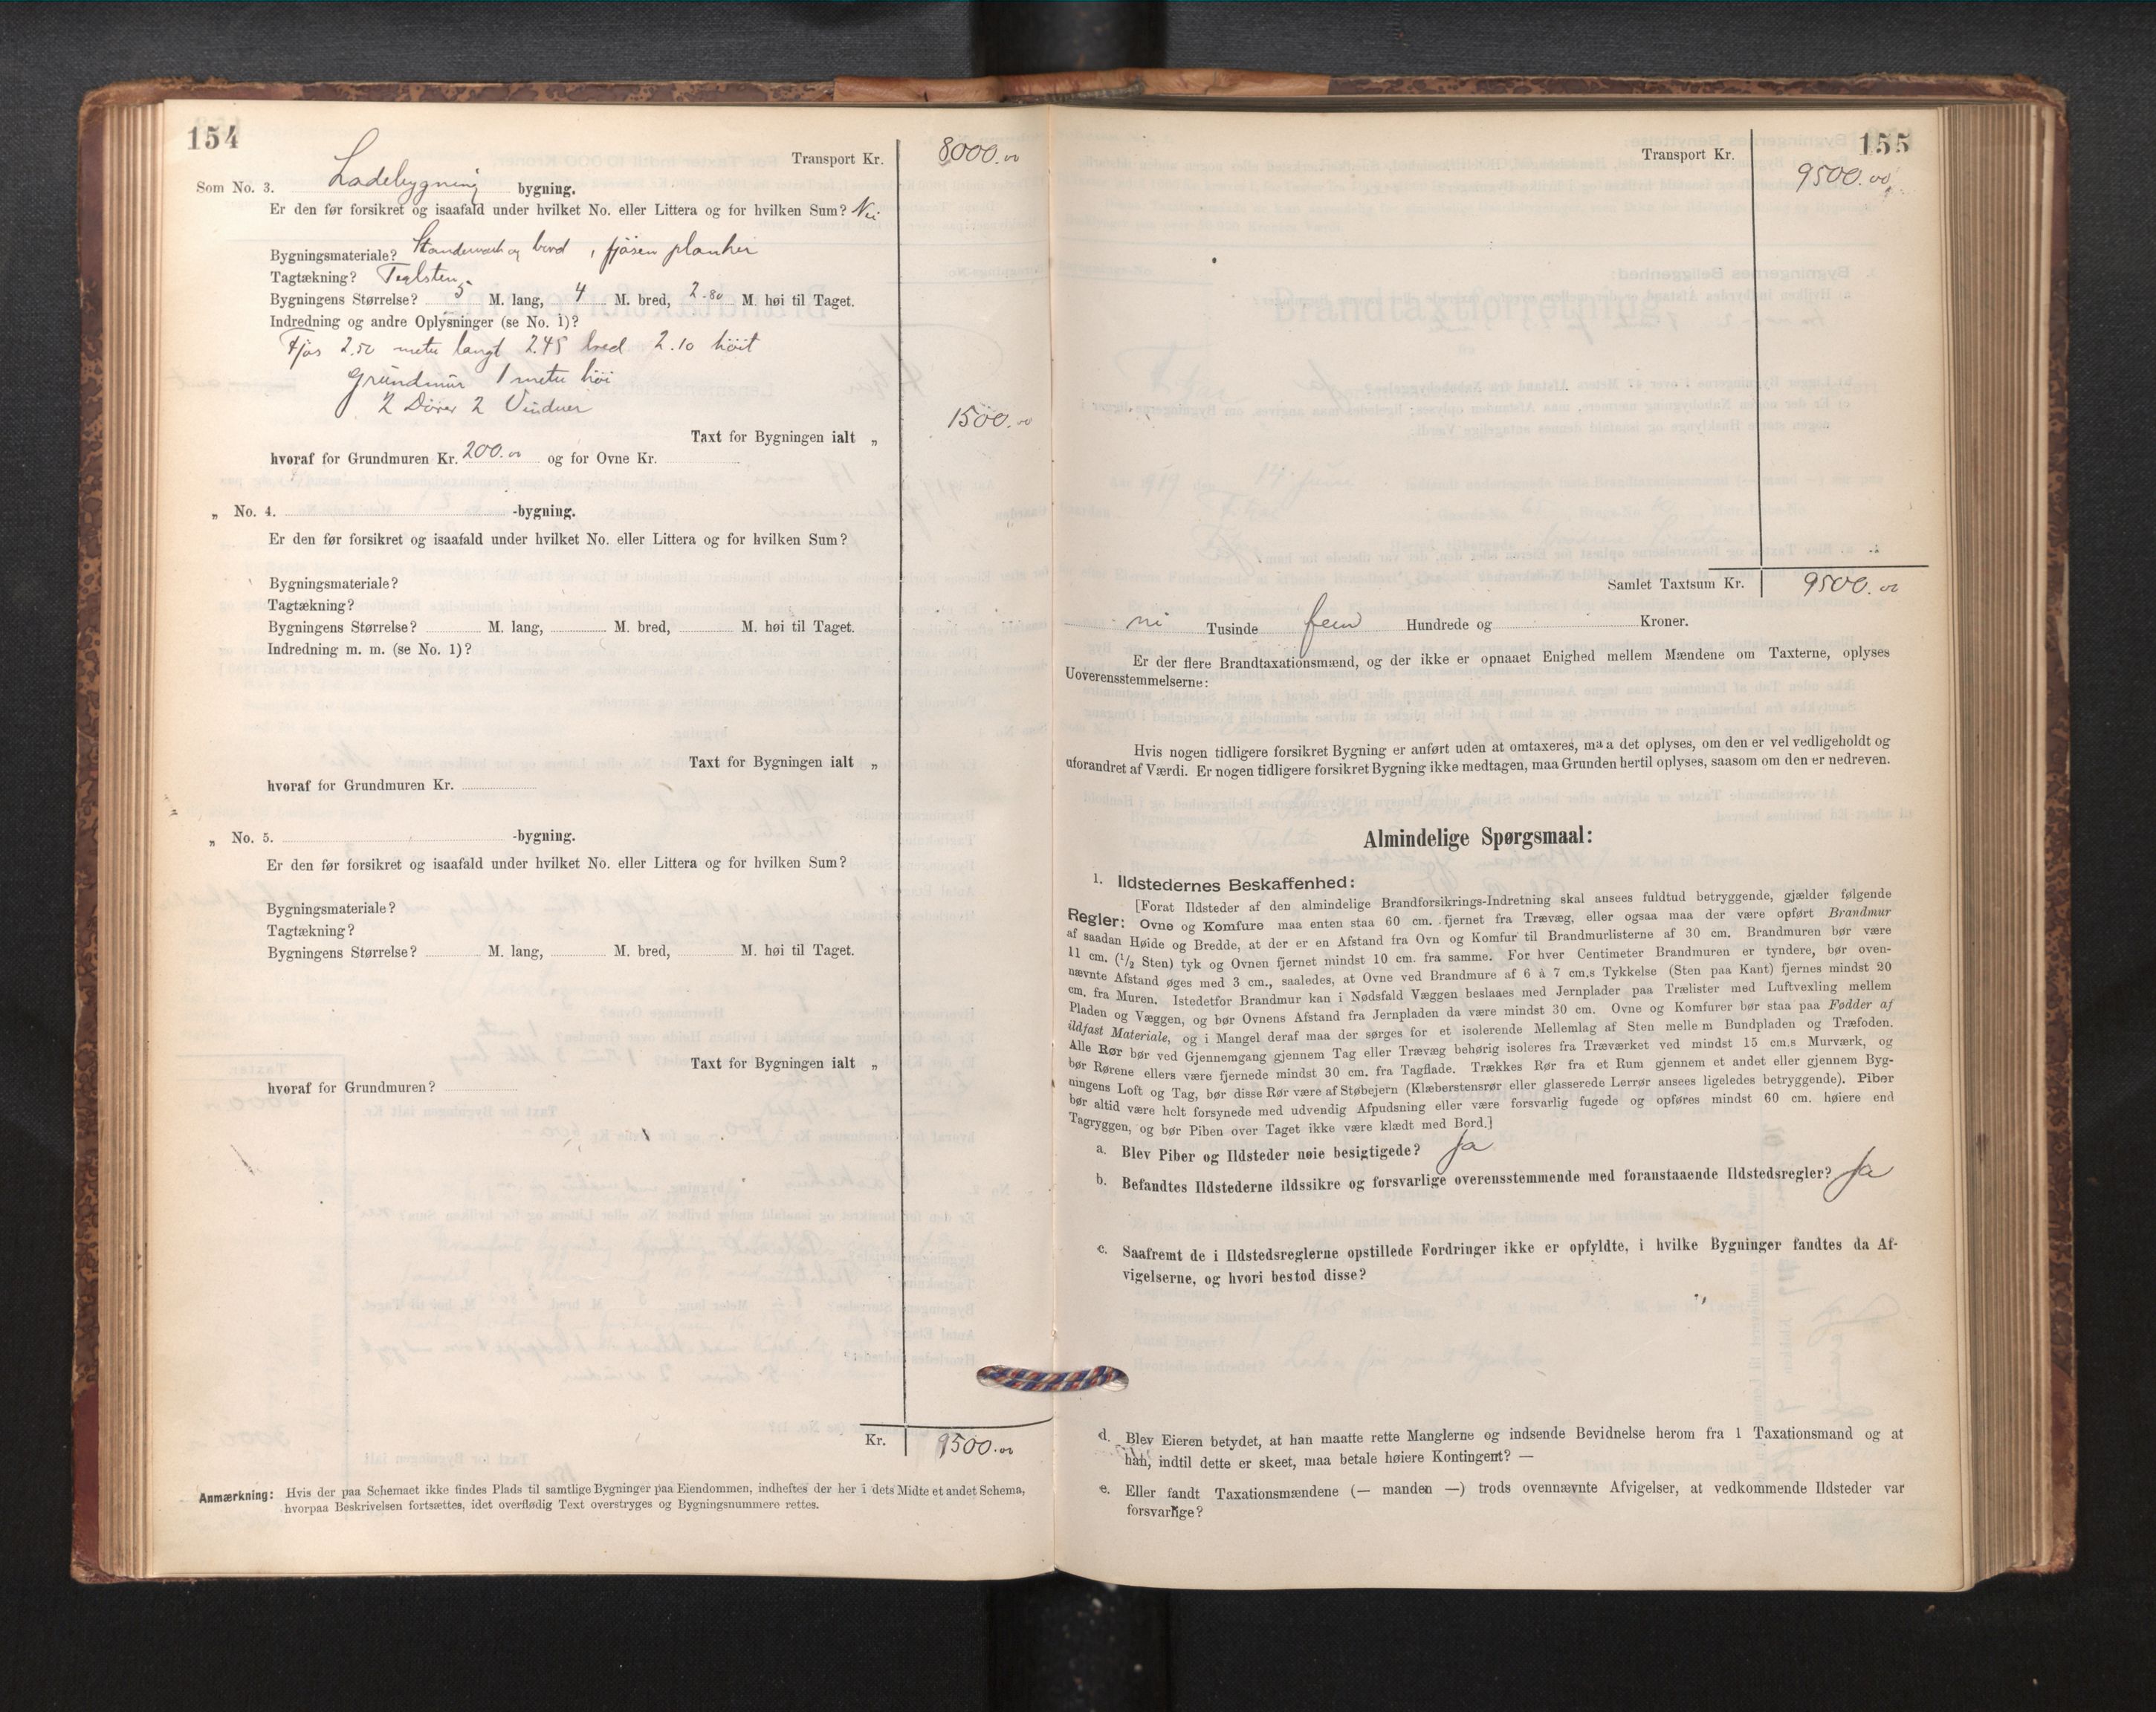 154
Transport Kr. 8000.00
Som No. 3. Ladebygning bygning.
Er den før forsikret og isaafald under hvilket No. eller Littera og for hvilken Sum? Nei
Bygningsmateriale? Standerværk og bord, fjøsen planker
Tagtækning? Teglsten
Bygningens Størrelse? 5 M. lang, 4 M. bred, 2.80 M. høi til Taget.
Indredning og andre Oplysninger (se No. 1)?
Fjøs 2.50 meter langt 2.45 bred 2.10 höit
Grundmur 1 meter höi
2 Dører 2 Vinduer
1500.00
Taxt for Bygningen ialt „
hvoraf for Grundmuren Kr. 200.00 og for Ovne Kr.
„ No. 4. -bygning.
Er den før forsikret og isaafald under hvilket No. eller Littera og for hvilken Sum?
Bygningsmateriale?
Tagtækning?
Bygningens Størrelse? M. lang, M. bred, M. høi til Taget.
Indredning m. m. (se No. 1)?
Taxt for Bygningen ialt „
hvoraf for Grundmuren Kr.
„ No. 5. -bygning.
Er den før forsikret og isaafald under hvilket No. eller Littera og for hvilken Sum?
Bygningsmateriale?
Tagtækning?
Bygningens Størrelse? M. lang, M. bred, M. høi til Taget.
Taxt for Bygningen ialt „
hvoraf for Grundmuren?
Kr. 9500.00
Anmærkning: Hvis der paa Schemaet ikke findes Plads til samtlige Bygninger paa Eiendommen, indheftes der her i dets Midte et andet Schema,
hvorpaa Beskrivelsen fortsættes, idet overflødig Text overstryges og Bygningsnummere rettes.
155
Transport Kr.
9500.00
Samlet Taxtsum Kr. 9500.00
ni Tusinde fem Hundrede og Kroner.
Er der flere Brandtaxationsmænd, og der ikke er opnaaet Enighed mellem Mændene om Taxterne, oplyses
Uoverensstemmelserne:
Hvis nogen tidligere forsikret Bygning er anført uden at omtaxeres, maa det oplyses, om den er vel vedligeholdt og
uforandret af Værdi. Er nogen tidligere forsikret Bygning ikke medtagen, maa Grunden hertil oplyses, saasom om den er nedreven.
Almindelige Spørgsmaal:
1. Ildstedernes Beskaffenhed:
[Forat Ildsteder af den almindelige Brandforsikrings-Indretning skal ansees fuldtud betryggende, gjælder følgende
Regler: Ovne og Komfure maa enten staa 60 cm. fjernet fra Trævæg, eller ogsaa maa der være opført Brandmur
af saadan Høide og Bredde, at der er en Afstand fra Ovn og Komfur til Brandmurlisterne af 30 cm. Brandmuren bør være
11 cm. (1/2 Sten) tyk og Ovnen fjernet mindst 10 cm. fra samme. For hver Centimeter Brandmuren er tyndere, bør oven-
nævnte Afstand øges med 3 cm., saaledes, at Ovne ved Brandmure af 6 à 7 cm.s Tykkelse (Sten paa Kant) fjernes mindst 20
cm. fra Muren. Istedetfor Brandmur kan i Nødsfald Væggen beslaaes med Jernplader paa Trælister med Luftvexling mellem
Pladen og Væggen, og bør Ovnens Afstand fra Jernpladen da være mindst 30 cm. Ovne og Komfurer bør staa paa Fødder af
ildfast Materiale, og i Mangel deraf maa der sørges for et isolerende Mellemlag af Sten mellem Bundpladen og Træfoden.
Alle Rør bør ved Gjennemgang gjennem Tag eller Trævæg behørig isoleres fra Træværket ved mindst 15 cm.s Murværk, og
bør Rørene ellers være fjernede mindst 30 cm. fra Tagflade. Trækkes Rør fra et Rum gjennem et andet eller gjennem Byg-
ningens Loft og Tag, bør disse Rør være af Støbejern (Klæberstensrør eller glasserede Lerrør ansees ligeledes betryggende). Piber
bør altid være helt forsynede med udvendig Afpudsning eller være forsvarlig fugede og opføres mindst 60 cm. høiere end
Tagryggen, og bør Piben over Taget ikke være klædt med Bord.]
a. Blev Piber og Ildsteder nøie besigtigede? Ja
b. Befandtes Ildstederne ildssikre og forsvarlige overensstemmende med foranstaaende Ildstedsregler? Ja
c. Saafremt de i Ildstedsreglerne opstillede Fordringer ikke er opfyldte, i hvilke Bygninger fandtes da Af-
vigelserne, og hvori bestod disse?
d. Blev Eieren betydet, at han maatte rette Manglerne og indsende Bevidnelse herom fra 1 Taxationsmand og at
han, indtil dette er skeet, maa betale høiere Kontingent? —
e. Eller fandt Taxationsmændene (— manden —) trods ovennævnte Afvigelser, at vedkommende Ildsteder var
forsvarlige?